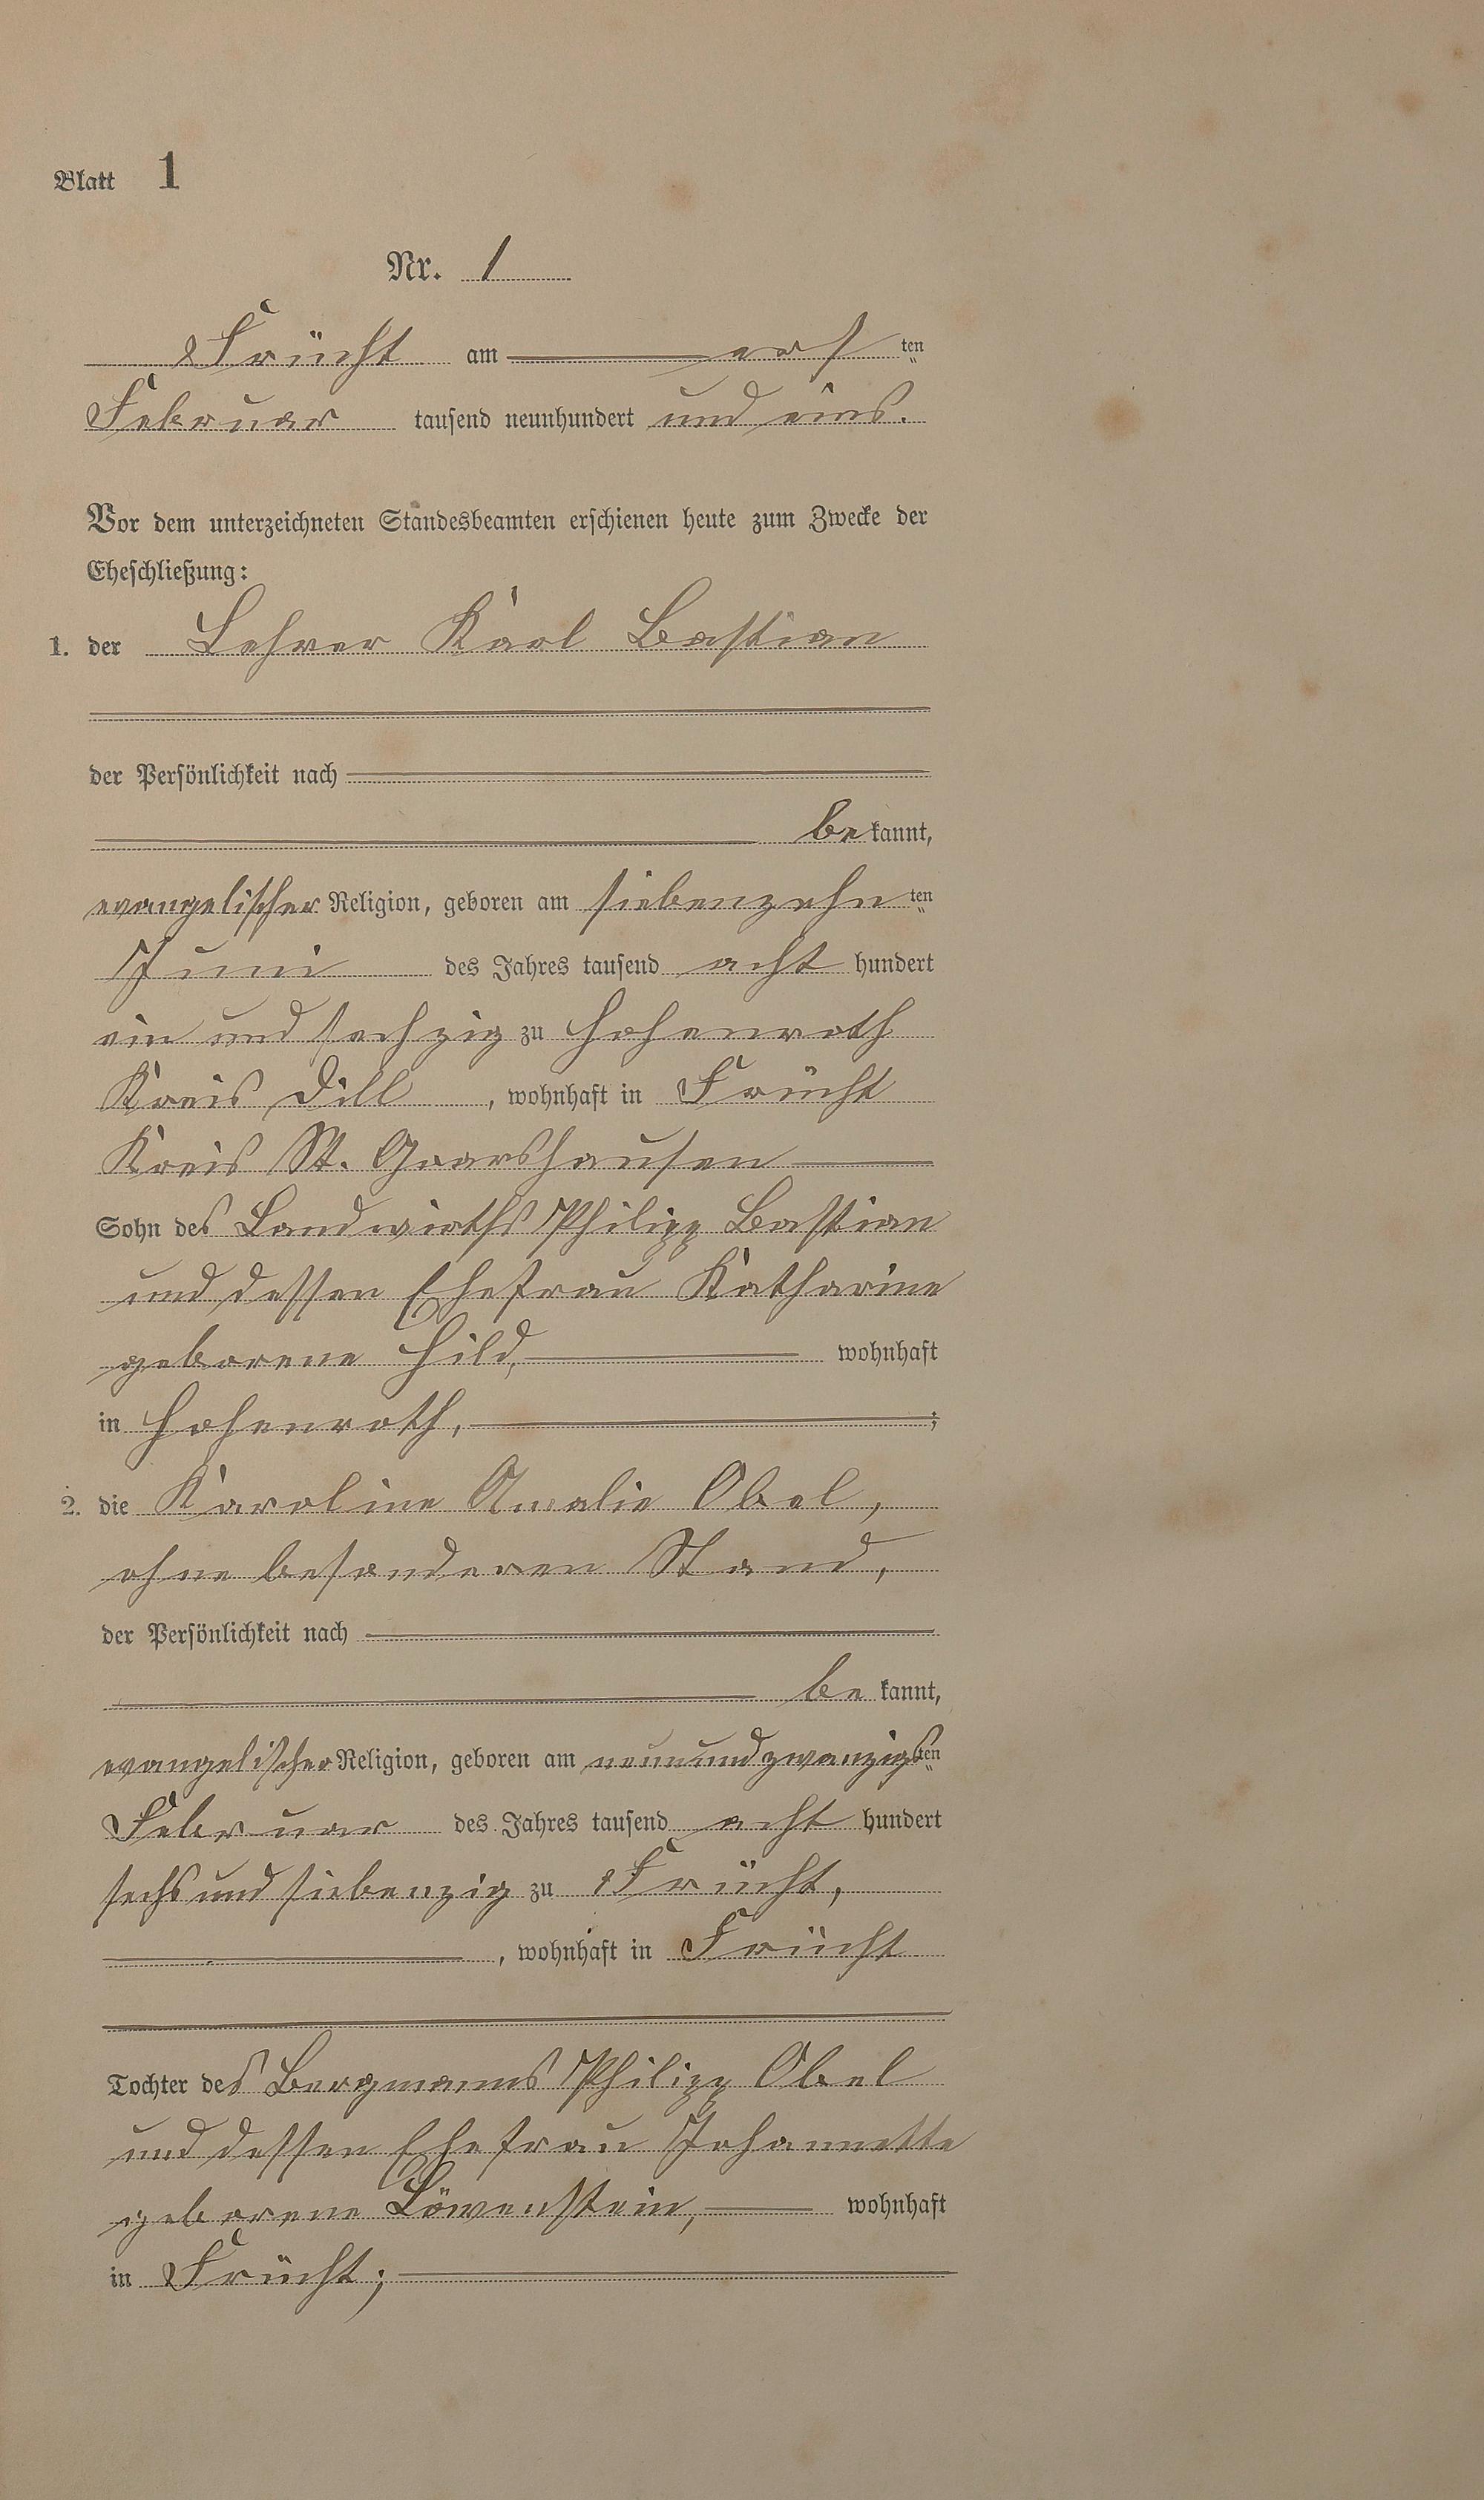 Blatt 1
Nr. 1
Frücht am ersten
Februar tausend neunhundert und eins.
Vor dem unterzeichneten Standesbeamten erschienen heute zum Zwecke der
Eheschließung:
1. der Lehrer Karl Bastian
der Persönlichkeit nach
bekannt,
evangelischer Religion, geboren am siebenzehnten
Juni des Jahres tausend acht hundert
ein und sechzig zu Hohenroth
Kreis Dill, wohnhaft in Frücht
Kreis St. Goarshausen
Sohn des Landwirths Philipp Bastian
und dessen Ehefrau Katharine
geborene Hild, wohnhaft
in Hohenroth, ;
2. die Karoline Amalie Obel,
ohne besonderen Stand,
der Persönlichkeit nach
be kannt,
evangelischer Religion, geboren am neunundzwanzigsten
Februar des Jahres tausend acht hundert
sechs und siebenzig zu Frücht,
, wohnhaft in Frücht
Tochter des Bergmanns Philipp Obel
und dessen Ehefrau Johannette
geborene Löwenstein, wohnhaft
in Frücht;